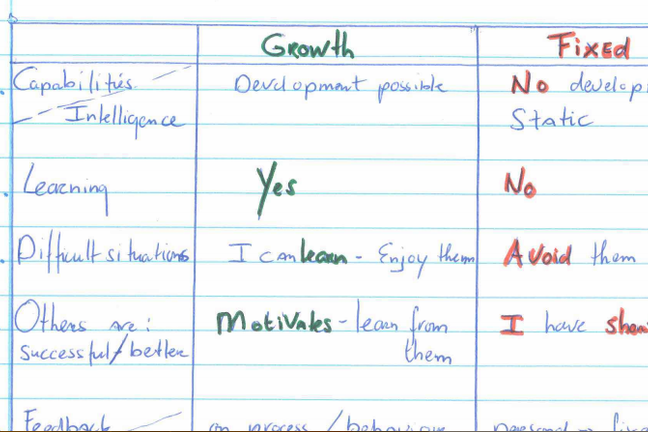 Growth Fixed
Capabilities Development possible No
Intelligence Static
Learning Yes No
Difficult situations I can learn - Enjoy them Avoid them
Others are: Motivates - learn from I have
successful/better them
Feedback on process / behaviour